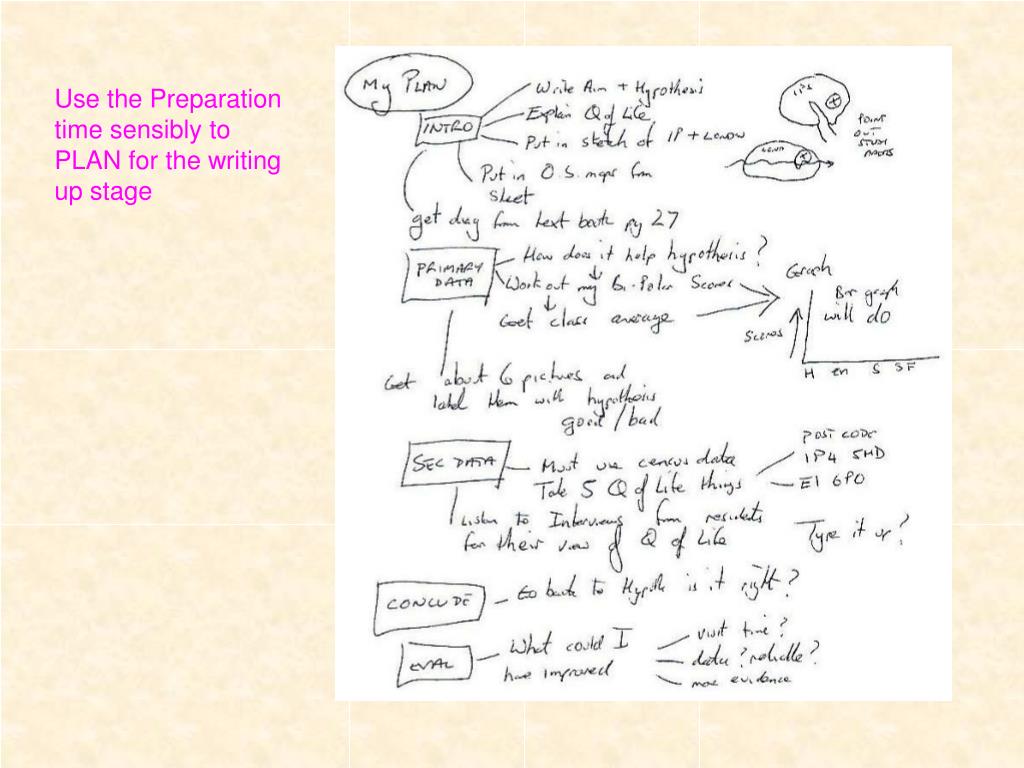 Use the Preparation
time sensibly to
PLAN for the writing
up stage
My PLAN
INTRO
Write Aim + Hypothesis
Explain Q of Life
Put in sketch of IP + LONDON
Put in O.S. maps from
sheet
get diag from text book pg 27
IPS
POINT
OUT
STUDY
AREAS
PRIMARY
DATA
How does it help hypothesis?
Work out my Bi-Polar Scores
Get class average
Graph
Bar graph
will do
Scores
H en S SF
Get about 6 pictures and
label them with hypothesis
good/bad
SEC DATA
Must use census data
Take 5 Q of Life things
POST CODE
IP4 5HD
E1 6PO
Listen to Interviews from residents
for their view of Q of Life
Type it up?
CONCLUDE
Go back to Hypoth is it right?
EVAL
What could I
have improved
visit time?
data? reliable?
more evidence